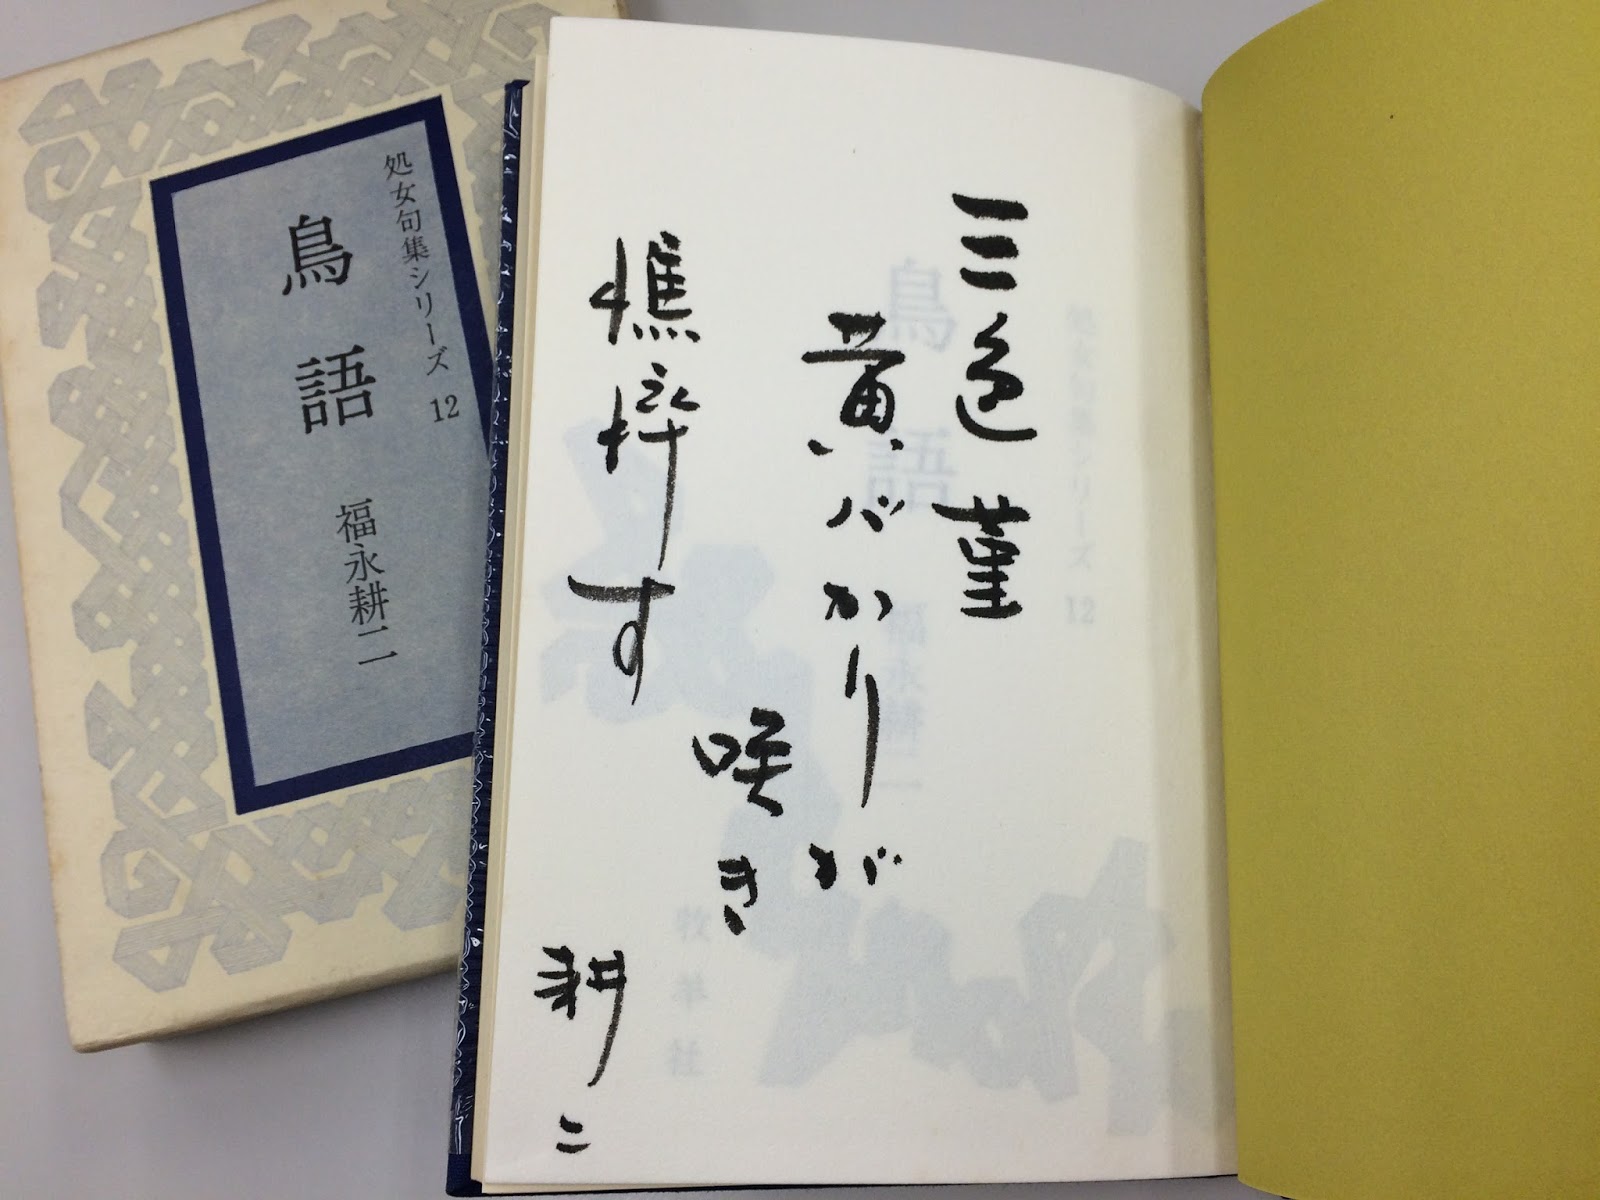 処女句集シリーズ 12
鳥語
福永耕二
三色菫
黄バかりが
咲き
憔悴す
耕二
鳥語
処女句集シリーズ 12
福永耕二
牧羊社